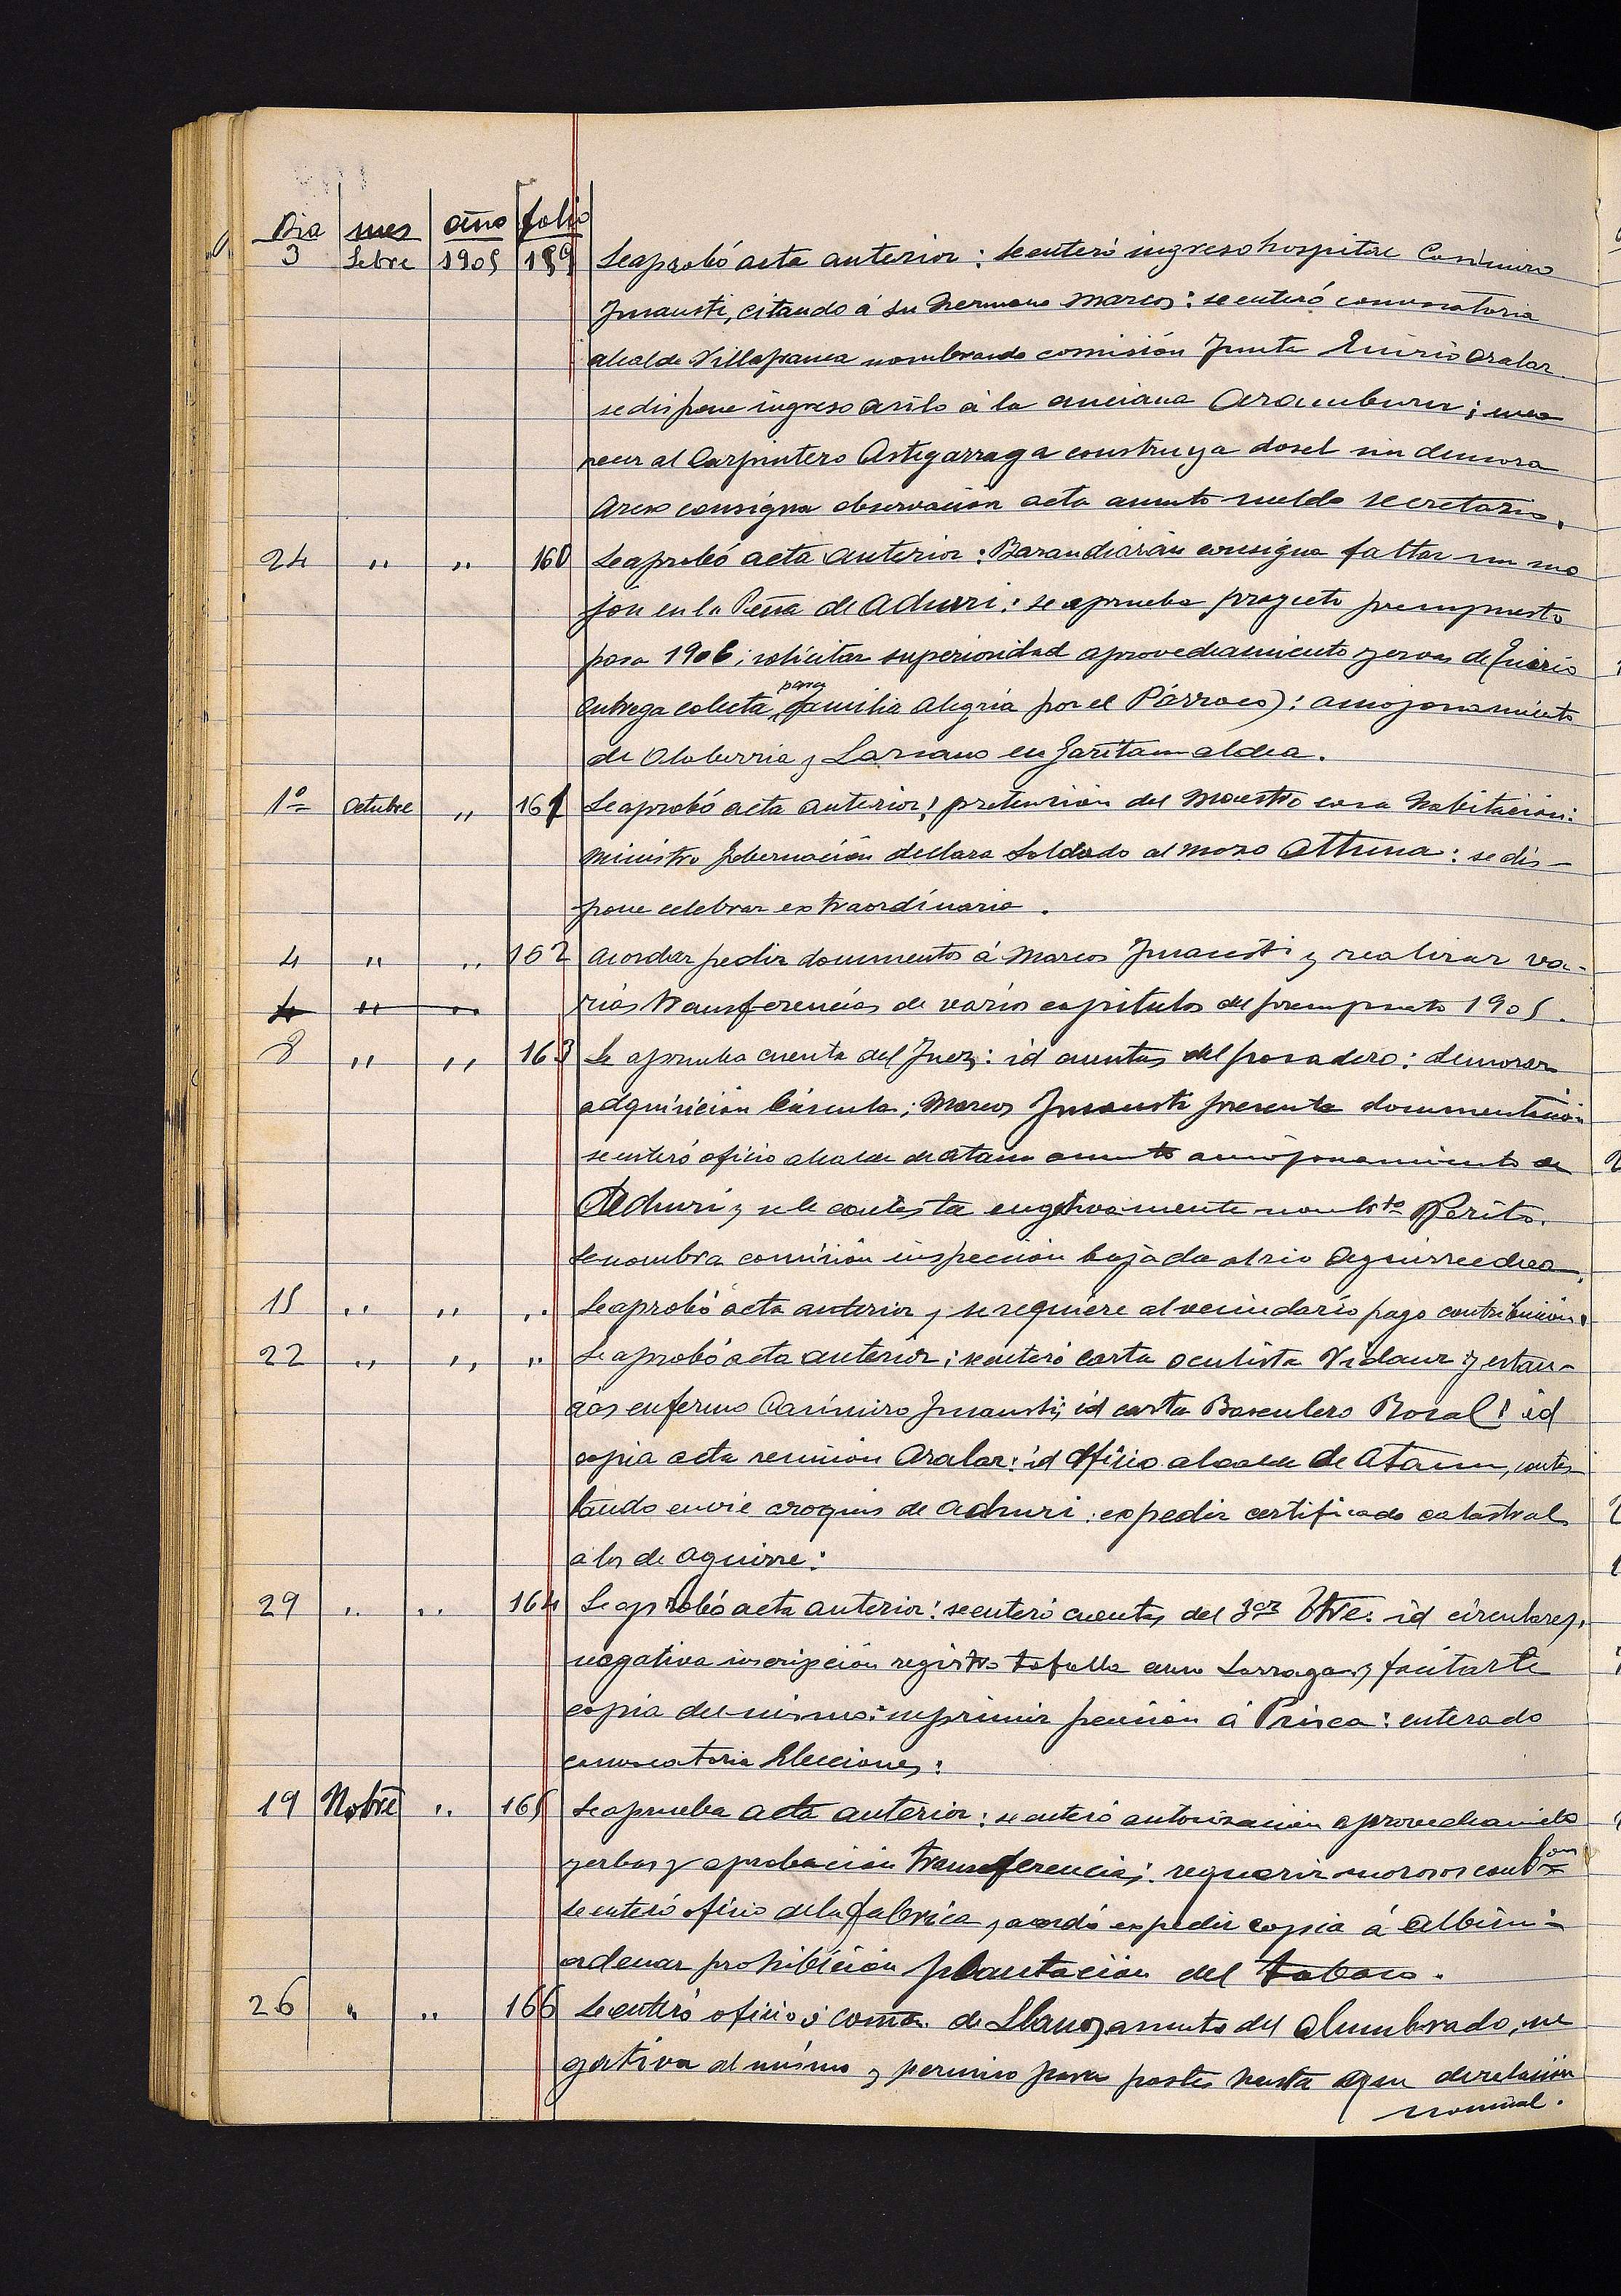 Dia mes año folio
3 Sebre 1905 159 Se aprobó acta anterior: se enteró ingreso hospital Casimiro
Insausti, citando á su hermano Marcos: se enteró convocatoria
alcalde Villafranca nombrando comisión Junta Enirio Aralar
se dispone ingreso asilo á la anciana Aramburu;
al Carpintero Astigarraga construya dosel sin demora
consigna observación acta asunto sueldo secretario.
24 " " 160 Se aprobó acta anterior: Barandiarán consigna faltar un mo
jón en la Peña de Adurri: se aprueba proyecto presupuesto
para 1906; solicitar superioridad aprovechamiento yervas de Enirio
entrega colecta para familia Alegría por el Párroco): amojonamiento
de Olaberria y Lazcano en
1º Octubre " 161 Se aprobó acta anterior; pretensión del Maestro casa habitación:
Ministro Gobernación declara soldado al mozo Altuna: se dis-
pone celebrar extraordinaria.
4 " " 162 Acordar pedir documentos á Marcos Insausti y realizar va-
4 " " rias transferencias de varios capitulos del presupuesto 1905.
8 " " 163 Se aprueba cuenta del Juez: id cuentas del posadero: demorar
adquisición báscula; Marcos Insausti presenta documentación
se enteró oficio alcalde de Ataun asunto amojonamiento de
Adurri y se le contesta nombto Perito.
Se nombra comisión inspección bajada al rio Aguirreechea.
15 " " " Se aprobó acta anterior y se requiere al vecindario pago contribución.
22 " " " Se aprobó acta anterior; se enteró carta oculista Vidaur y estan-
cias enfermo Casimiro Insausti; id carta Basculero Rosal: id
copia acta reunión Aralar: id oficio alcalde de Ataun, contes
tando envie croquis de Adurri: expedir certificado catastral
a los de Aguirre:
29 " " 164 Se aprobó acta anterior: se enteró cuentas del 3er Ttre: id circulares,
negativa inscripción registro Tafalla Larraga y
copia del mismo: suprimir pensión á Prisca: enterado
convocatoria Elecciones:
19 Nobre " 165 Se aprueba acta anterior: se enteró autorización aprovechamieto
yerbas y aprobación transferencia; requerir morosos conton
se enteró oficio de la fabrica y acordó expedir copia á Albin:
ordenar prohibición plantación del tabaco.
26 " " 166 Se enteró oficio de Llanos asunto del alumbrado, ne
gativa al mismo y permiso para postes hasta que de relación
nominal.